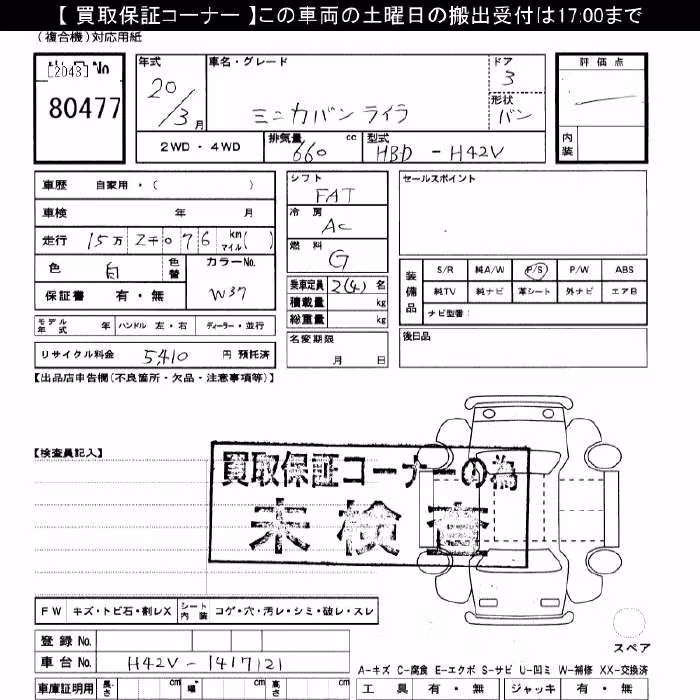 【買取保証コーナー】この車両の土曜日の搬出受付は17:00まで
（複合機）対応用紙
[2043] No
80477
年式
20/3月
車名・グレード
ミニカバン ライラ
ドア
3
形状
バン
評価点
内装
2WD・4WD
排気量 660 cc
型式 HBD - H42V
車歴 自家用・（ ）
車検 年 月
走行 15万2千076 km マイル( )
色 白 色替 カラーNo. W37
保証書 有・無
モデル年式 年 ハンドル 左・右 ディーラー・並行
リサイクル料金 5,410 円 預託済
シフト
FAT
冷房
AC
燃料
G
乗車定員 2(4) 名
積載量 kg
総重量 kg
名変期限
月 日
セールスポイント
装備品
S/R 純A/W P/S P/W ABS
純TV 純ナビ 革シート 外ナビ エアB
ナビ型番：
後日品
【出品店申告欄（不良箇所・欠品・注意事項等）】
【検査員記入】
買取保証コーナーの為
未検査
FW キズ・トビ石・割レX シート内装 コゲ・穴・汚レ・シミ・破レ・スレ
登録No.
車台No. H42V - 1417121
車庫証明用 長さ cm 幅 cm 高さ cm
スペア
A-キズ C-腐食 E-エクボ S-サビ U-凹ミ W-補修 XX-交換済
工具 有・無 ジャッキ 有・無